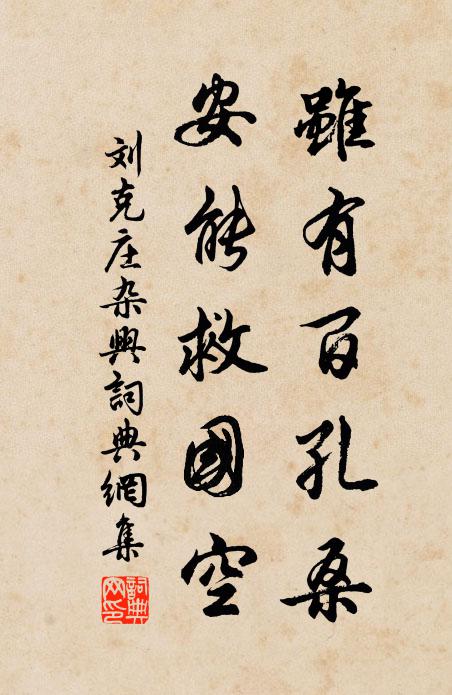 雖有百孔桑
安能救國空
刘克庄杂興詞典網集
詞典网印